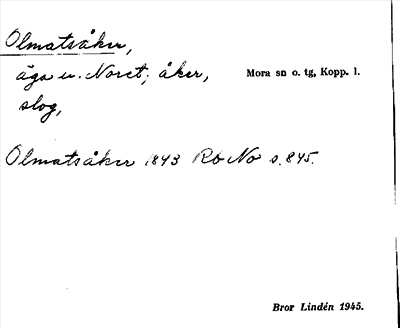 Olmatsåker,
äga u. Noret; åker, Mora sn o. tg, Kopp. l.
slog,
Olmatsåker 1843 Rb No s. 845.
Bror Lindén 1945.